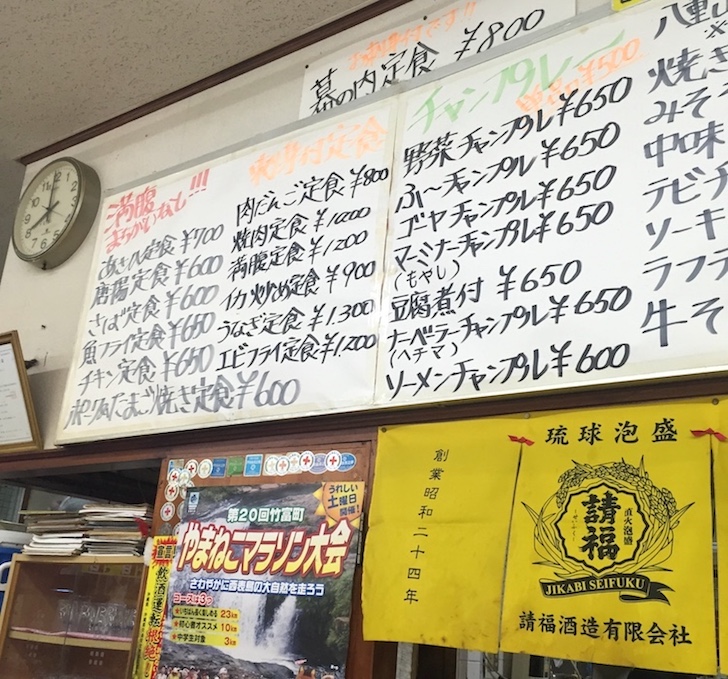 幕の内定食 ¥800
満腹
まちがいなし!!!
あさひ定食 ¥700
唐揚定食 ¥600
さば定食 ¥600
魚フライ定食 ¥650
チキン定食 ¥650
ポークたまご焼き定食 ¥600
肉だんご定食 ¥800
焼肉定食 ¥1000
満腹定食 ¥1200
イカ炒め定食 ¥900
うなぎ定食 ¥1.300
エビフライ定食 ¥1.200
チャンプルー
単品 ¥500
野菜チャンプル ¥650
ふ〜チャンプル ¥650
ゴーヤチャンプル ¥650
マーミナーチャンプル ¥650
(もやし)
豆腐煮付 ¥650
ナーベラーチャンプル ¥650
(ヘチマ)
ソーメンチャンプル ¥600
八重山
焼き
みそ
中味
テビ
ソーキ
ラフテ
牛そ
第20回竹富町
うれしい
土曜日
開催!
やまねこマラソン大会
さわやかに西表島の大自然を走ろう
コースは3つ
いちばん長く楽しめる 23km
初心者オススメ 10km
中学生対象 3km
宣言!
飲酒運転根絶!
創業昭和二十四年
琉球泡盛
請福
直火泡盛
JIKABI SEIFUKU
請福酒造有限会社